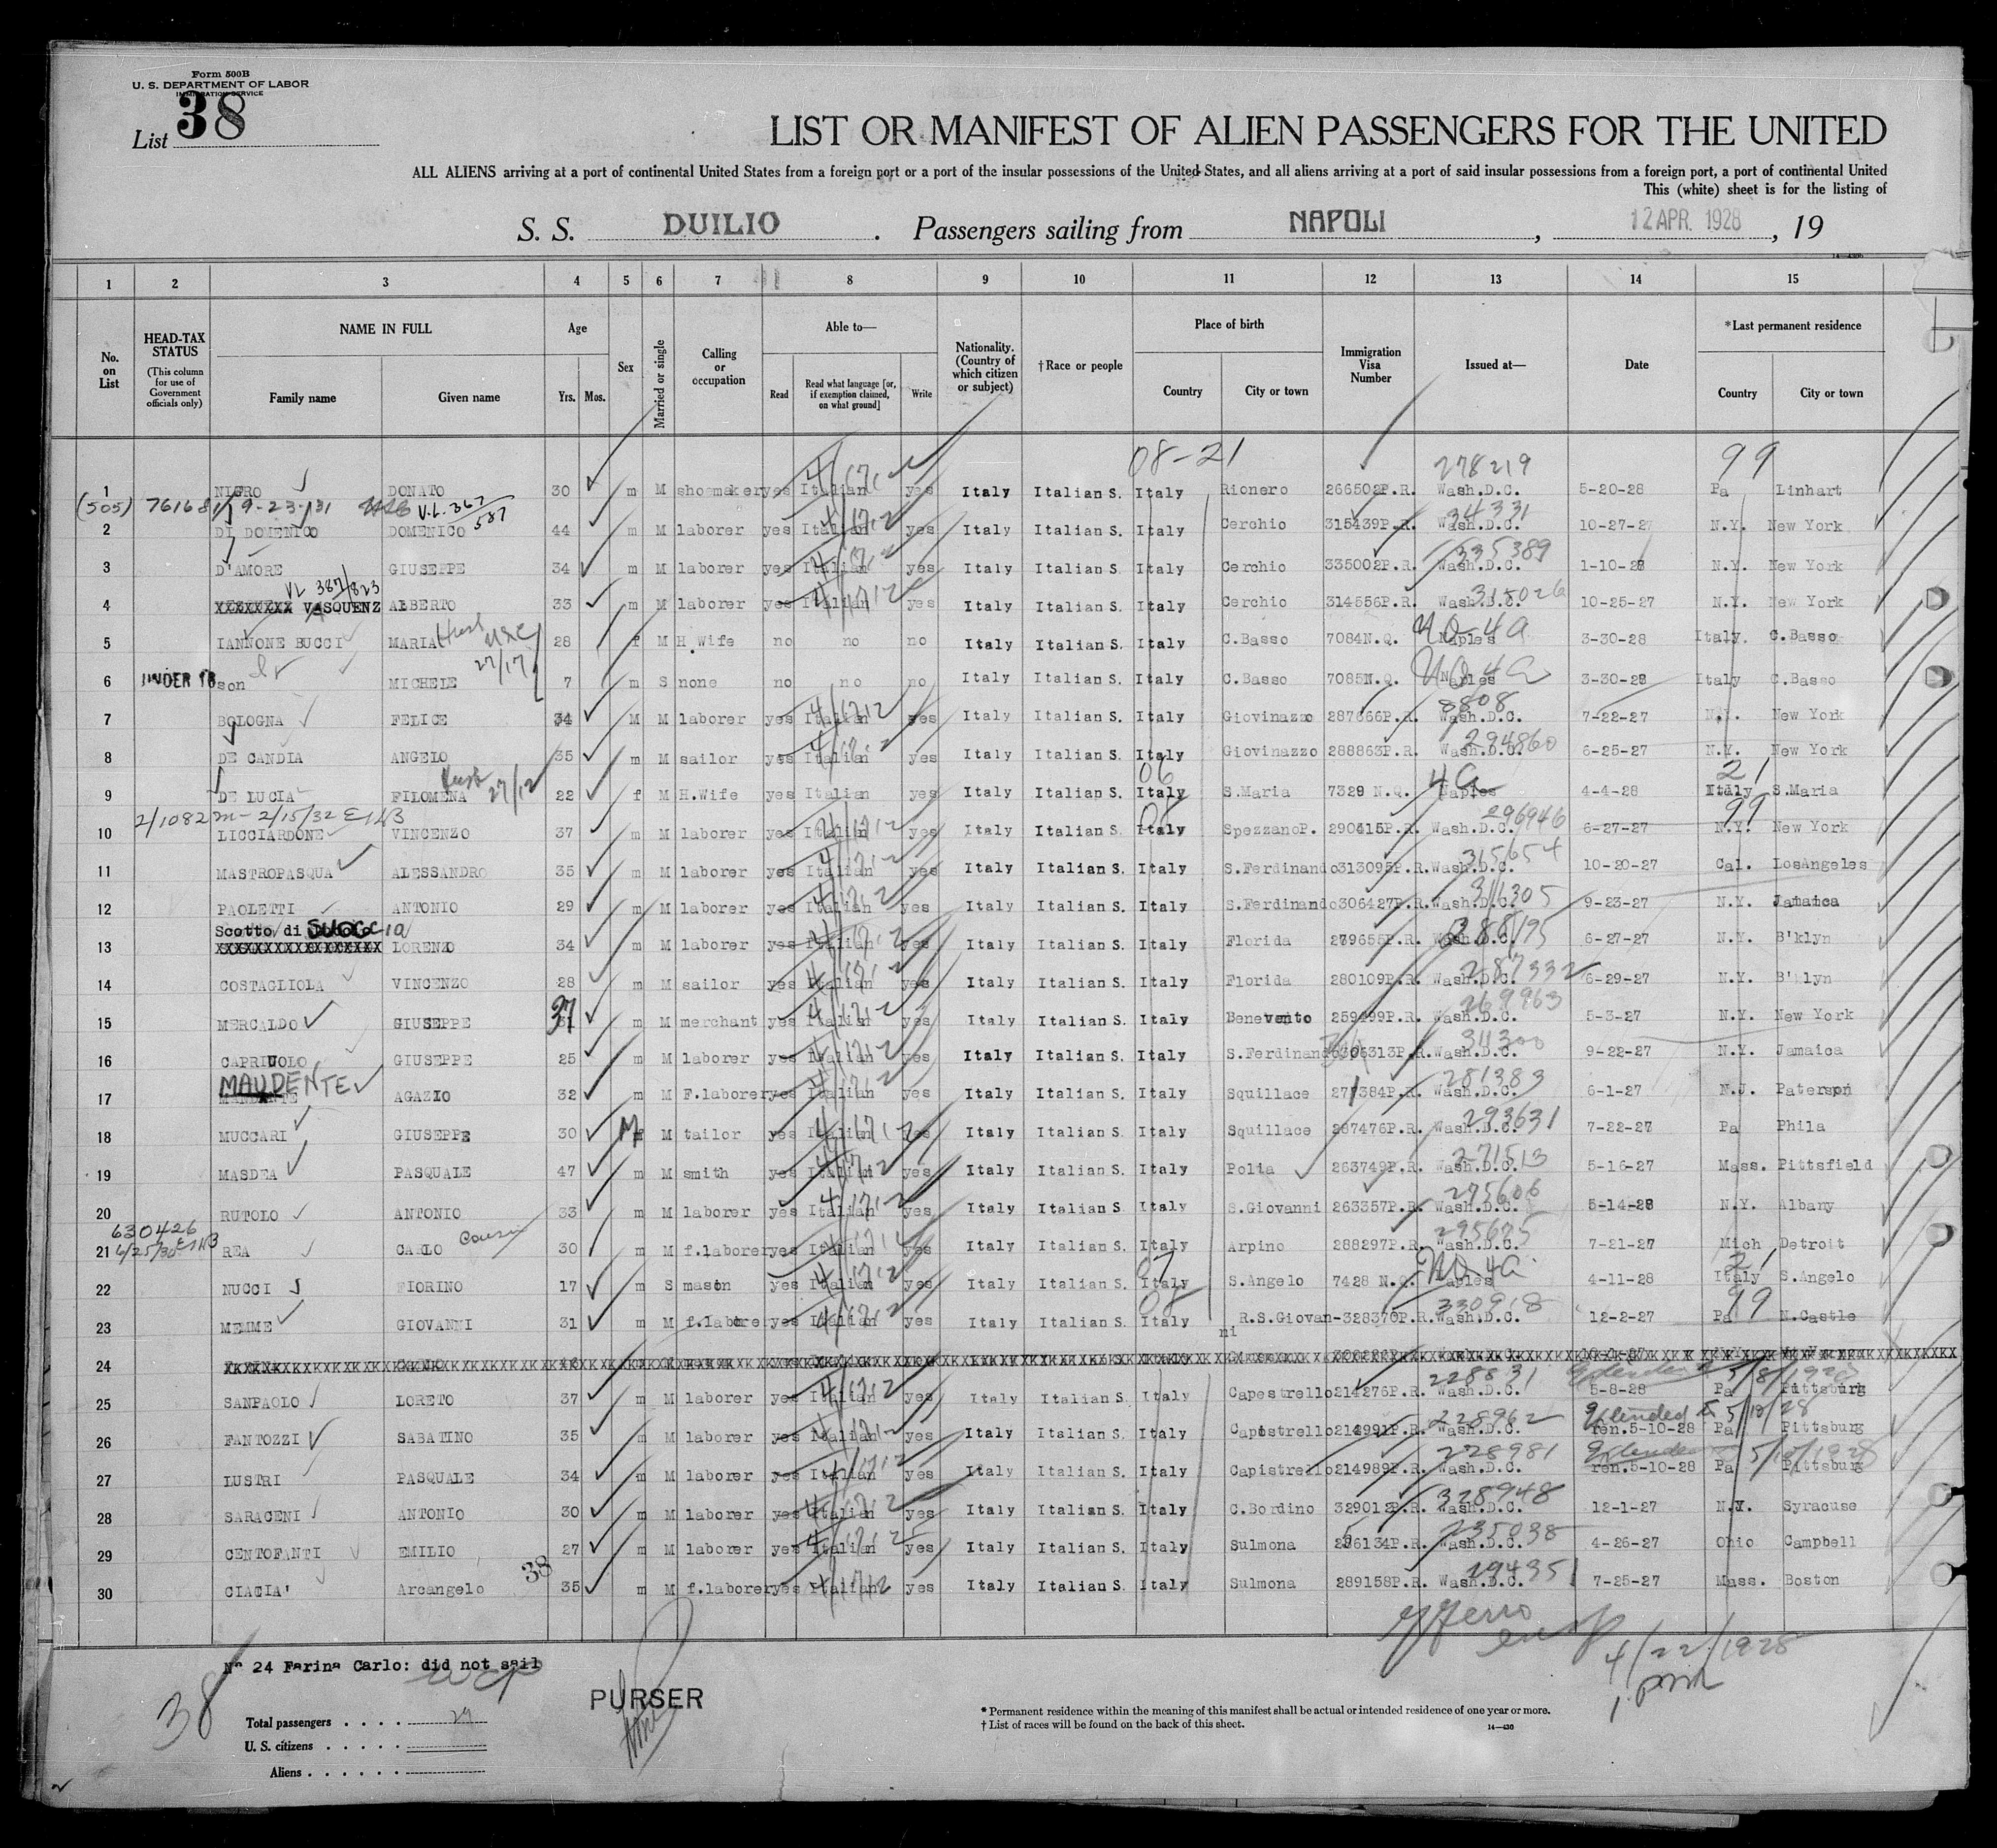 Form 500B
U. S. DEPARTMENT OF LABOR
IMMIGRATION SERVICE
List 38
LIST OR MANIFEST OF ALIEN PASSENGERS FOR THE UNITED
ALL ALIENS arriving at a port of continental United States from a foreign port or a port of the insular possessions of the United States, and all aliens arriving at a port of said insular possessions from a foreign port, a port of continental United
This (white) sheet is for the listing of
S. S. DUILIO . Passengers sailing from NAPOLI , 12 APR. 1928 , 19
14—4306
1 2 3 4 5 6 7 8 9 10 11 12 13 14 15
No. on List
HEAD-TAX STATUS (This column for use of Government officials only)
NAME IN FULL
Family name Given name
Age
Yrs. Mos.
Sex
Married or single
Calling or occupation
Able to—
Read Read what language [or, if exemption claimed, on what ground] Write
Nationality. (Country of which citizen or subject)
† Race or people
Place of birth
Country City or town
Immigration Visa Number
Issued at—
Date
*Last permanent residence
Country City or town
08-21 278219 99
1 NIGRO DONATO 30 m M shoemaker yes Italian yes Italy Italian S. Italy Rionero 266502P.R. Wash.D.C. 5-20-28 Pa Linhart
(505) 76168 9-23-31 V.L. 367/587 34331
2 DI DOMENICO DOMENICO 44 m M laborer yes Italian yes Italy Italian S. Italy Cerchio 315439P.R. Wash.D.C. 10-27-27 N.Y. New York
335389
3 D'AMORE GIUSEPPE 34 m M laborer yes Italian yes Italy Italian S. Italy Cerchio 335002P.R. Wash.D.C. 1-10-28 N.Y. New York
VL 387/823 315026
4 XXXXXXXX VASQUENZ ALBERTO 33 m M laborer yes Italian yes Italy Italian S. Italy Cerchio 314556P.R. Wash.D.C. 10-25-27 N.Y. New York
5 IANNONE BUCCI MARIA Husb 28 f M H.Wife no no no Italy Italian S. Italy C.Basso 7084N.Q. Naples NQ-4a 3-30-28 Italy. C.Basso
27/17
6 UNDER 16 son MICHELE 7 m S none no no no Italy Italian S. Italy C.Basso 7085N.Q. Naples NQ 4a 3-30-28 Italy C.Basso
8808
7 BOLOGNA FELICE 34 M M laborer yes Italian yes Italy Italian S. Italy Giovinazzo 287666P.R. Wash.D.C. 7-22-27 N.Y. New York
294860
8 DE CANDIA ANGELO 35 m M sailor yes Italian yes Italy Italian S. Italy Giovinazzo 288863P.R. Wash.D.C. 6-25-27 N.Y. New York
Husb 27/12 06 4a 21
9 DE LUCIA FILOMENA 22 f M H.Wife yes Italian yes Italy Italian S. Italy S.Maria 7329 N.Q. Naples 4-4-28 Italy S.Maria
2/1082 m - 2/15/32 296946 99
10 LICCIARDONE VINCENZO 37 m M laborer yes Italian yes Italy Italian S. Italy SpezzanoP. 290415P.R. Wash.D.C. 6-27-27 N.Y. New York
315654
11 MASTROPASQUA ALESSANDRO 35 m M laborer yes Italian yes Italy Italian S. Italy S.Ferdinando313095P.R. Wash.D.C. 10-20-27 Cal. LosAngeles
311305
12 PAOLETTI ANTONIO 29 m M laborer yes Italian yes Italy Italian S. Italy S.Ferdinando306427P.R. Wash.D.C. 9-23-27 N.Y. Jamaica
Scotto di 288195
13 XXXXXXXXXXXXXXXXX LORENZO 34 m M laborer yes Italian yes Italy Italian S. Italy Florida 279655P.R. Wash.D.C. 6-27-27 N.Y. B'klyn
287332
14 COSTAGLIOLA VINCENZO 28 m M sailor yes Italian yes Italy Italian S. Italy Florida 280109P.R. Wash.D.C. 6-29-27 N.Y. B'klyn
269963
15 MERCALDO GIUSEPPE 37 m M merchant yes Italian yes Italy Italian S. Italy Benevento 259499P.R. Wash.D.C. 5-3-27 N.Y. New York
311300
16 CAPRIUOLO GIUSEPPE 25 m M laborer yes Italian yes Italy Italian S. Italy S.Ferdinando306313P.R. Wash.D.C. 9-22-27 N.Y. Jamaica
MAUDENTE 281383
17 AGAZIO 32 m M F.laborer yes Italian yes Italy Italian S. Italy Squillace 271384P.R. Wash.D.C. 6-1-27 N.J. Paterson
293631
18 MUCCARI GIUSEPPE 30 M M tailor yes Italian yes Italy Italian S. Italy Squillace 287476P.R. Wash.D.C. 7-22-27 Pa Phila
271513
19 MASDEA PASQUALE 47 m M smith yes Italian yes Italy Italian S. Italy Polia 263749P.R. Wash.D.C. 5-16-27 Mass. Pittsfield
275606
20 RUTOLO ANTONIO 33 m M laborer yes Italian yes Italy Italian S Italy S.Giovanni 263357P.R. Wash.D.C. 5-14-28 N.Y. Albany
630426 6/25/30 Cousin 295675
21 REA CARLO 30 m M f.laborer yes Italian yes Italy Italian S. Italy Arpino 288297P.R. Wash.D.C. 7-21-27 Mich Detroit
07 NQ 4a 21
22 NUCCI FIORINO 17 m S mason yes Italian yes Italy Italian S. Italy S.Angelo 7428 N.Q. Naples 4-11-28 Italy S.Angelo
08 330918 99
23 MEMME GIOVANNI 31 m M f.laborer yes Italian yes Italy Italian S. Italy R.S.Giovan-ni 328370P.R. Wash.D.C. 12-2-27 Pa N.Castle
24
228831 5/8/1928
25 SANPAOLO LORETO 37 m M laborer yes Italian yes Italy Italian S. Italy Capestrello214276P.R. Wash.D.C. 5-8-28 Pa Pittsburg
228962 Extended to 5/10/28
26 FANTOZZI SABATINO 35 m M laborer yes Italian yes Italy Italian S. Italy Capistrello214991P.R. Wash.D.C. ren.5-10-28 Pa Pittsburg
228981 Extended 5/10/1928
27 LUSTRI PASQUALE 34 m M laborer yes Italian yes Italy Italian S. Italy Capistrello214989P.R. Wash.D.C. ren.5-10-28 Pa Pittsburg
328948
28 SARACENI ANTONIO 30 m M laborer yes Italian yes Italy Italian S. Italy C.Bordino 329012P.R. Wash.D.C. 12-1-27 N.Y. Syracuse
235038
29 CENTOFANTI EMILIO 27 m M laborer yes Italian yes Italy Italian S. Italy Sulmona 256134P.R. Wash.D.C. 4-26-27 Ohio Campbell
38 294351
30 CIAGIA' Arcangelo 35 m M f.laborer yes Italian yes Italy Italian S. Italy Sulmona 289158P.R. Wash.D.C. 7-25-27 Mass. Boston
4/22/1928
1 pm
Nº 24 Farina Carlo: did not sail
38
PURSER
Total passengers . . . . 29
U. S. citizens . . . . .
Aliens . . . . . .
* Permanent residence within the meaning of this manifest shall be actual or intended residence of one year or more.
† List of races will be found on the back of this sheet.
14—430